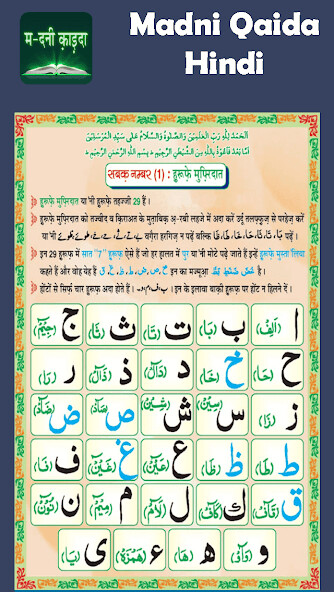 म-दनी क़ाइदा
Madni Qaida
Hindi
اَلْحَمْدُ لِلّٰهِ رَبِّ الْعٰلَمِيْنَ وَالصَّلٰوةُ وَالسَّلَامُ عَلٰى سَيِّدِ الْمُرْسَلِيْنَ
اَمَّا بَعْدُ فَاَعُوْذُ بِاللّٰهِ مِنَ الشَّيْطٰنِ الرَّجِيْمِ ط بِسْمِ اللّٰهِ الرَّحْمٰنِ الرَّحِيْمِ ط
सबक़ नम्बर (1) : हुरूफ़े मुफ़्रिदात
हुरूफ़े मुफ़्रिदात या'नी हुरूफ़े तहज्जी 29 हैं।
हुरूफ़े मुफ़्रिदात को तज्वीद व क़िराअत के मुताबिक़ अ़-रबी लहजे में अदा करें उर्दू तलफ़्फ़ुज़ से परहेज़ करें
या'नी بے، تے، ثے، حے، خے वग़ैरा हरगिज़ न पढ़ें बल्कि بَا، تَا، ثَا، حَا، خَا पढ़ें।
इन 29 हुरूफ़ में सात "7" हुरूफ़ ऐसे हैं जो हर हालत में पुर या'नी मोटे पढ़े जाते हैं इन्हें हुरूफ़े मुस्ता'लिया
कहते हैं और वोह येह हैं خ، ص، ض، ط، ظ، غ، ق इन का मज्मूआ خُصَّ ضَغْطٍ قِظْ है।
होंटों से सिर्फ़ चार हुरूफ़ अदा होते हैं। ب، ف، م، و। इन के इलावा बाक़ी हुरूफ़ पर होंट न हिलने दें।
ا (اَلِفْ) ب (بَا) ت (تَا) ث (ثَا) ج (جِيْمْ)
ح (حَا) خ (خَا) د (دَالْ) ذ (ذَالْ) ر (رَا)
ز (زَا) س (سِيْنْ) ش (شِيْنْ) ص (صَادْ) ض (ضَادْ)
ط (طَا) ظ (ظَا) ع (عَيْنْ) غ (غَيْنْ) ف (فَا)
ق (قَافْ) ك (كَافْ) ل (لَامْ) م (مِيْمْ) ن (نُوْنْ)
و (وَاوْ) ه (هَا) ء (هَمْزَهْ) ى (يَا)